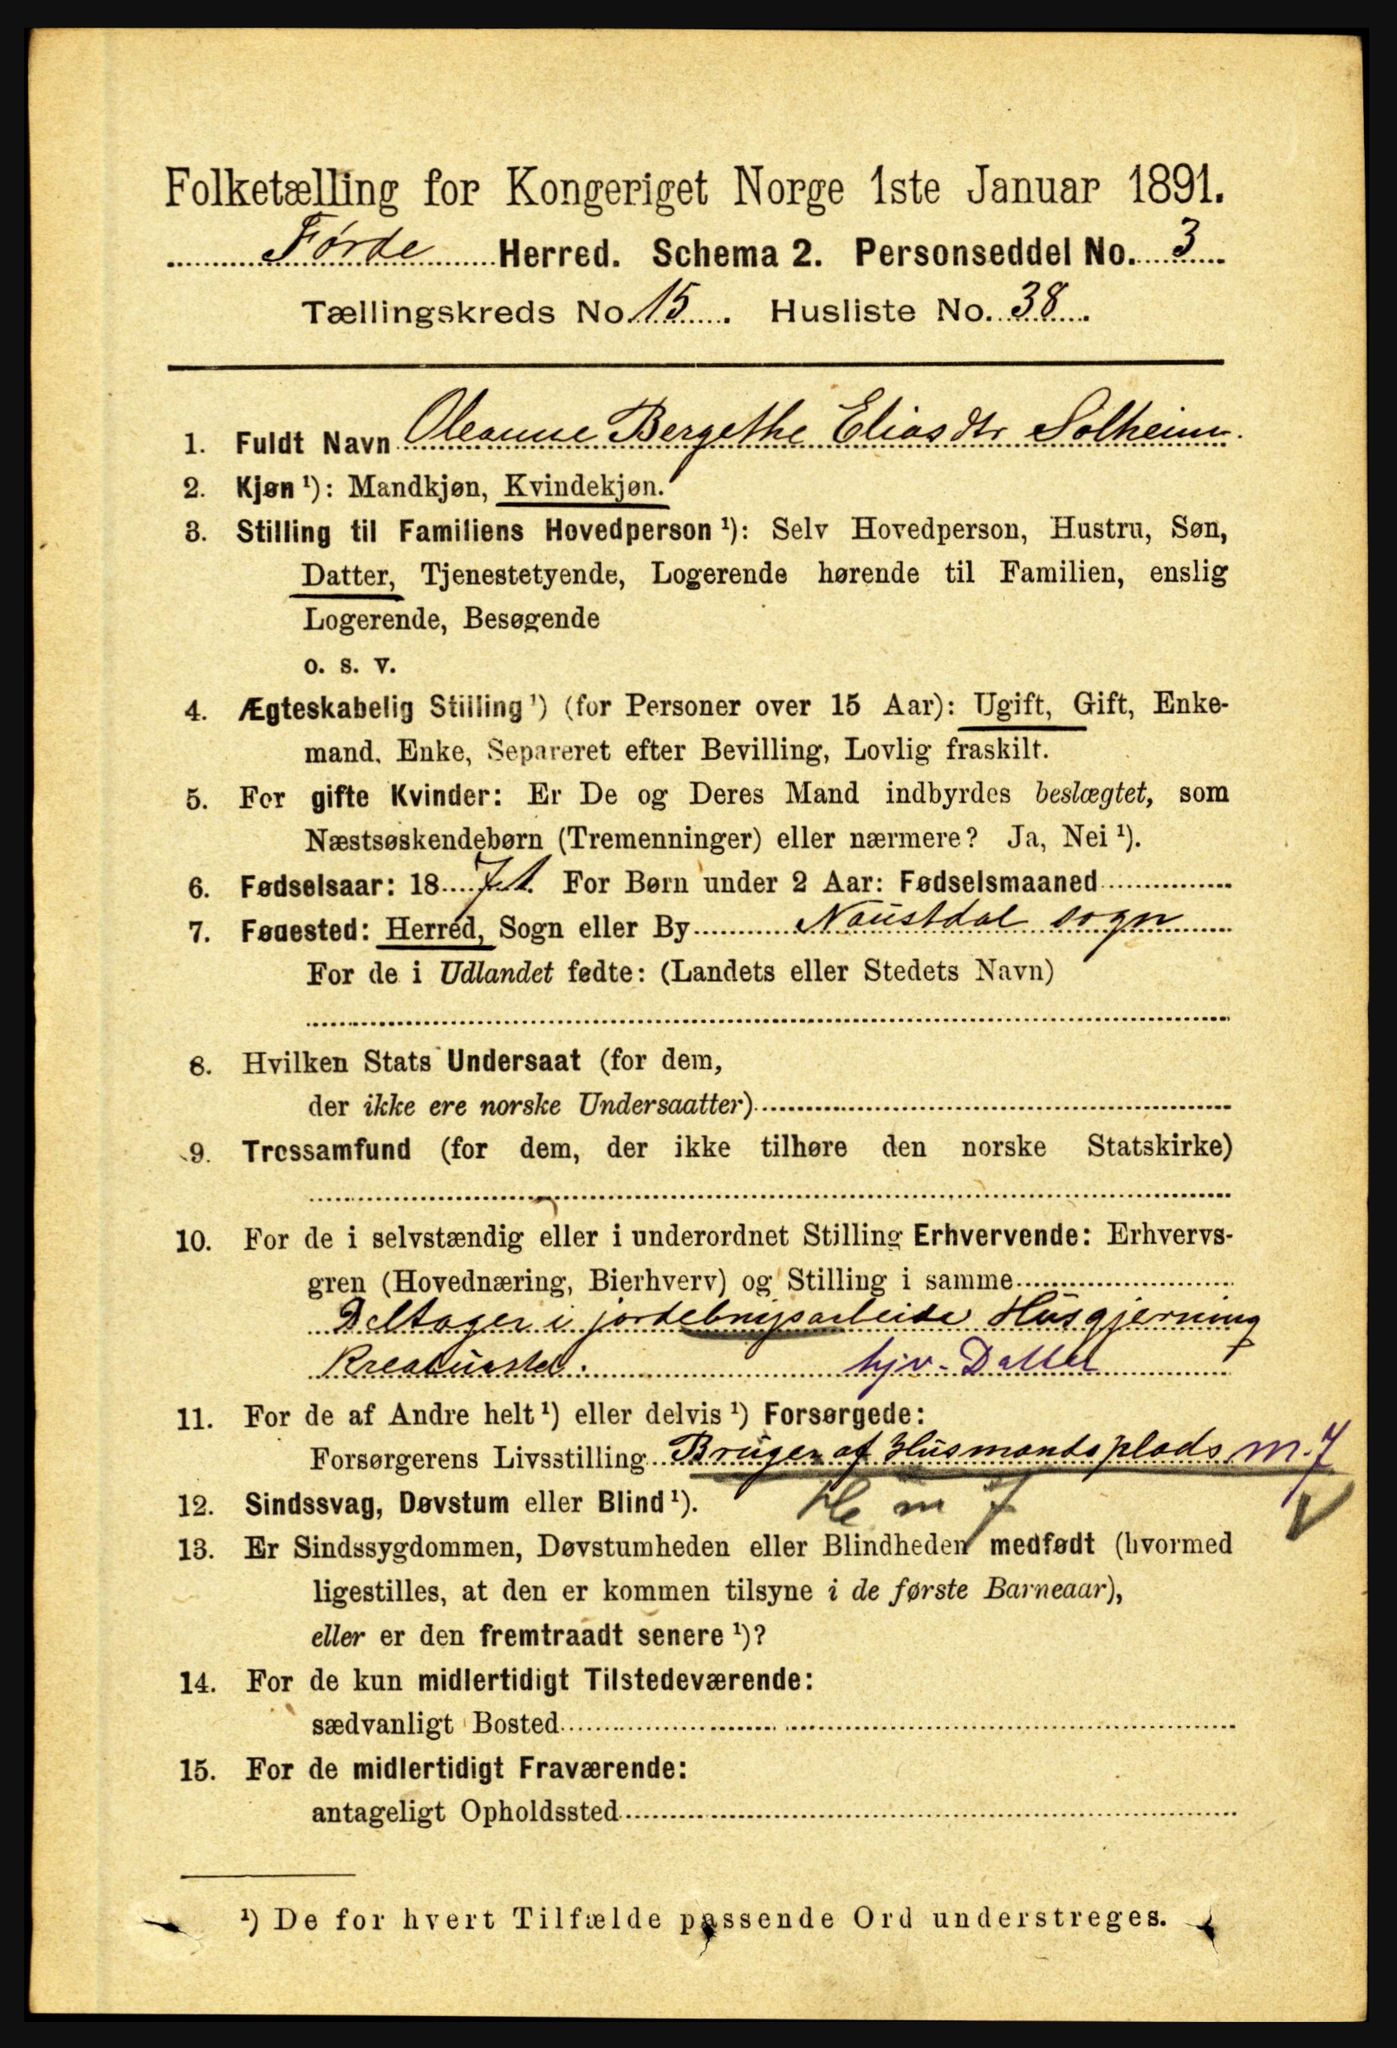 Folketælling for Kongeriget Norge 1ste Januar 1891.
Førde Herred. Schema 2. Personseddel No. 3
Tællingskreds No. 15. Husliste No. 38.
1. Fuldt Navn Oleanne Bergethe Eliasdtr Solheim.
2. Kjøn ¹): Mandkjøn, Kvindekjøn.
3. Stilling til Familiens Hovedperson ¹): Selv Hovedperson, Hustru, Søn,
Datter, Tjenestetyende, Logerende hørende til Familien, enslig
Logerende, Besøgende
o. s. v.
4. Ægteskabelig Stilling ¹) (for Personer over 15 Aar): Ugift, Gift, Enke-
mand, Enke, Separeret efter Bevilling, Lovlig fraskilt.
5. For gifte Kvinder: Er De og Deres Mand indbyrdes beslægtet, som
Næstsøskendebørn (Tremenninger) eller nærmere? Ja, Nei ¹).
6. Fødselsaar: 1871. For Børn under 2 Aar: Fødselsmaaned
7. Fødested: Herred, Sogn eller By Naustdal sogn
For de i Udlandet fødte: (Landets eller Stedets Navn)
8. Hvilken Stats Undersaat (for dem,
der ikke ere norske Undersaatter)
9. Trossamfund (for dem, der ikke tilhøre den norske Statskirke)
10. For de i selvstændig eller i underordnet Stilling Erhvervende: Erhvervs-
gren (Hovednæring, Bierhverv) og Stilling i samme
Deltager i jordebrugsarbeide Husgjerning
Kreaturstel. hjv. Datter
11. For de af Andre helt ¹) eller delvis ¹) Forsørgede:
Forsørgerens Livsstilling Bruger af Husmandsplads m. 7
12. Sindssvag, Døvstum eller Blind ¹). m 7
13. Er Sindssygdommen, Døvstumheden eller Blindheden medfødt (hvormed
ligestilles, at den er kommen tilsyne i de første Barneaar),
eller er den fremtraadt senere ¹)?
14. For de kun midlertidigt Tilstedeværende:
sædvanligt Bosted
15. For de midlertidigt Fraværende:
antageligt Opholdssted
¹) De for hvert Tilfælde passende Ord understreges.